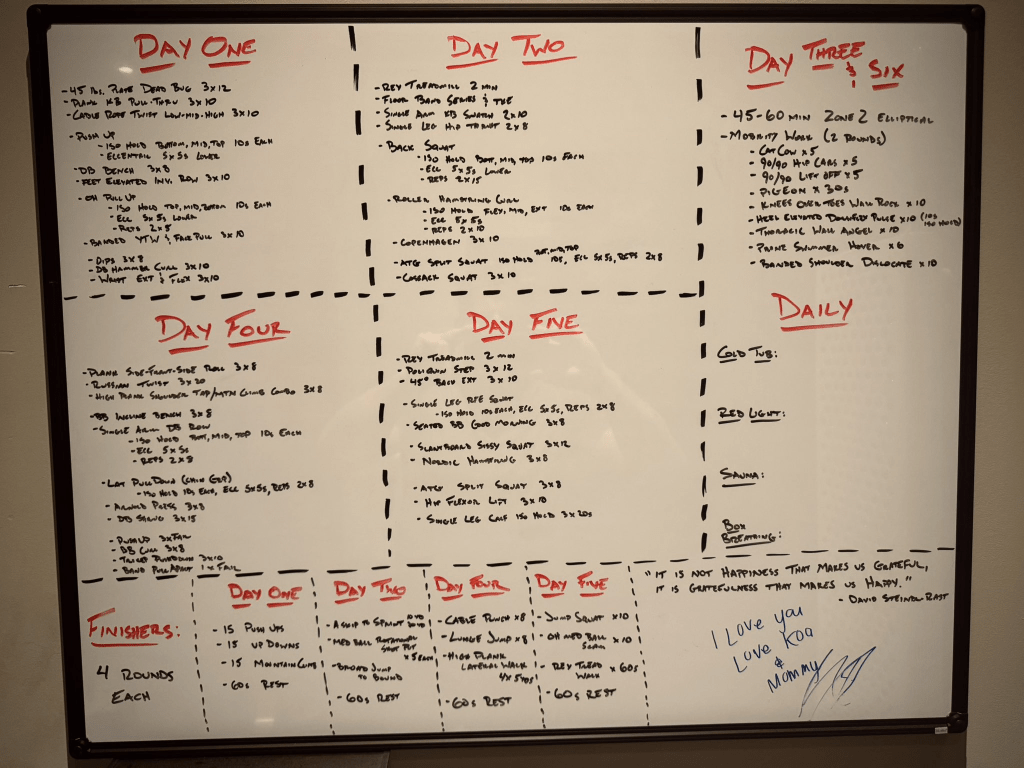 DAY ONE
- 45 lbs. PLATE DEAD BUG 3x12
- PLANK KB PULL-THRU 3x10
- CABLE ROPE TWIST LOW-MID-HIGH 3x10
- PUSH UP
- ISO HOLD BOTTOM, MID, TOP 10s EACH
- ECCENTRIC 5x5s LOWER
- DB BENCH 3x8
- FEET ELEVATED INV. ROW 3x10
- OH PULL UP
- ISO HOLD TOP, MID, BOTTOM 10s EACH
- ECC 5x5s LOWER
- REPS 2x5
- BANDED YTW & FACE PULL 3x10
- DIPS 3x8
- DB HAMMER CURL 3x10
- WRIST EXT & FLEX 3x10
DAY TWO
- REV TREADMILL 2 MIN
- FLOOR BAND SERIES & TKE
- SINGLE ARM KB SNATCH 2x10
- SINGLE LEG HIP THRUST 2x8
- BACK SQUAT
- ISO HOLD BOTT, MID, TOP 10s EACH
- ECC 5x5s LOWER
- REPS 2x15
- ROLLER HAMSTRING CURL
- ISO HOLD FLEX, MID, EXT 10s EACH
- ECC 5x5s
- REPS 2x10
- COPENHAGEN 3x10
- ATG SPLIT SQUAT ISO HOLD BOT, MID, TOP 10s, ECC 5x5s, REPS 2x8
- COSSACK SQUAT 3x10
DAY THREE & SIX
- 45-60 MIN ZONE 2 ELLIPTICAL
- MOBILITY WORK (2 ROUNDS)
- CAT COW x5
- 90/90 HIP CARS x5
- 90/90 LIFT OFF x5
- PIGEON x 30s
- KNEES OVER TOES WALL ROCK x10
- HEEL ELEVATED DORSIFLEX PULSE x10 (10s ISO HOLD)
- THORACIC WALL ANGEL x10
- PRONE SWIMMER HOVER x6
- BANDED SHOULDER DISLOCATE x10
DAY FOUR
- PLANK SIDE-FRONT-SIDE ROLL 3x8
- RUSSIAN TWIST 3x20
- HIGH PLANK SHOULDER TAP/MTN CLIMB COMBO 3x8
- BB INCLINE BENCH 3x8
- SINGLE ARM DB ROW
- ISO HOLD BOT, MID, TOP 10s EACH
- ECC 5x5s
- REPS 2x8
- LAT PULLDOWN (CHIN GRIP)
- ISO HOLD 10s EACH, ECC 5x5s, REPS 2x8
- ARNOLD PRESS 3x8
- DB SWING 3x15
- PUSH UP 3xFAIL
- DB CURL 3x8
- TRICEP PUSHDOWN 3x10
- BAND PULL APART 1xFAIL
DAY FIVE
- REV TREADMILL 2 MIN
- POLIQUIN STEP 3x12
- 45° BACK EXT 3x10
- SINGLE LEG RFE SQUAT
- ISO HOLD 10s EACH, ECC 5x5s, REPS 2x8
- SEATED BB GOOD MORNING 3x8
- SLANTBOARD SISSY SQUAT 3x12
- NORDIC HAMSTRING 3x8
- ATG SPLIT SQUAT 3x8
- HIP FLEXOR LIFT 3x10
- SINGLE LEG CALF ISO HOLD 3x20s
DAILY
COLD TUB:
RED LIGHT:
SAUNA:
BOX
BREATHING:
FINISHERS:
4 ROUNDS
EACH
DAY ONE
- 15 PUSH UPS
- 15 UP DOWNS
- 15 MOUNTAIN CLIMB
- 60s REST
DAY TWO
- A SKIP TO SPRINT
- MED BALL ROTATIONAL
SHOT PUT
x5 EACH
- BROAD JUMP
TO BOUND
- 60s REST
DAY FOUR
- CABLE PUNCH x8
- LUNGE JUMP x8
- HIGH PLANK
LATERAL WALK
4x5YDS
- 60s REST
DAY FIVE
- JUMP SQUAT x10
- OH MED BALL x10
SLAM
- REV TREAD x60s
WALK
- 60s REST
"IT IS NOT HAPPINESS THAT MAKES US GRATEFUL,
IT IS GRATEFULNESS THAT MAKES US HAPPY."
- DAVID STEINDL-RAST
I Love you
Love Koa
&
Mommy